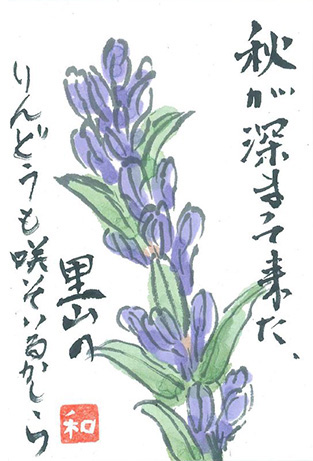 秋が深まって来た、
里山の
りんどうも咲いているかしら
和